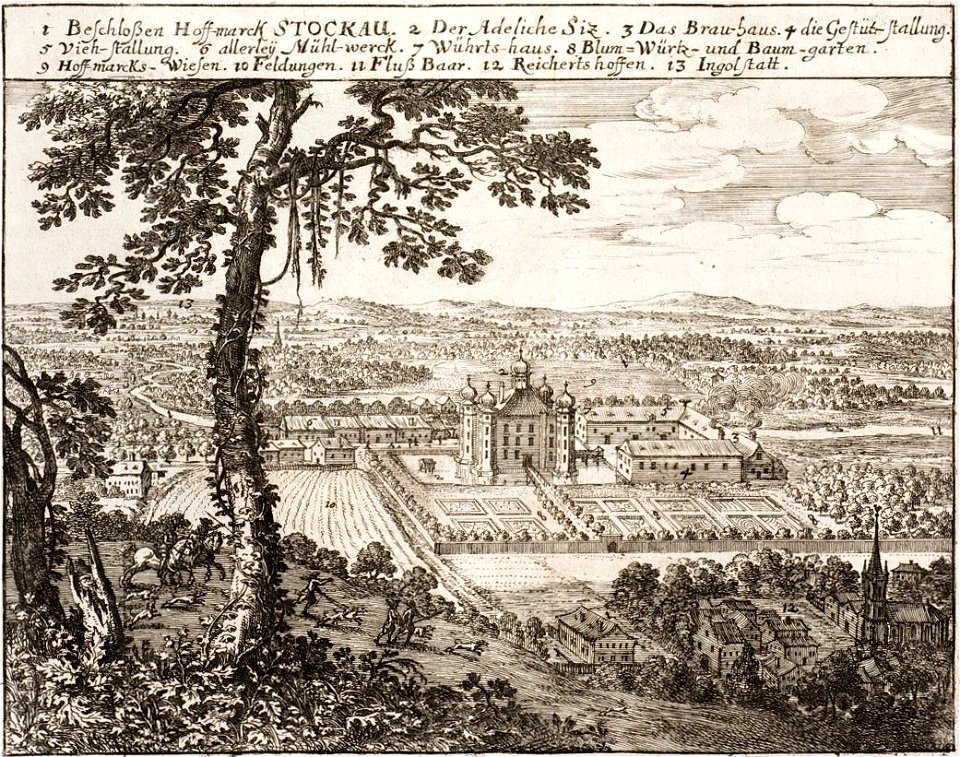 1 Beschloßen Hoff-marck STOCKAU. 2 Der Adeliche Siz. 3 Das Brau-haus. 4 die Gestüt-stallung.
5 Vieh-stallung. 6 allerleÿ Mühl-werck. 7 Wührts-haus. 8 Blum=Würtz- und Baum-garten.
9 Hoff-marcks-Wiesen. 10 Feldungen. 11 Fluß Baar. 12 Reicherts hoffen. 13 Ingolstatt.
13
2
9
11
5
3
4
10
12